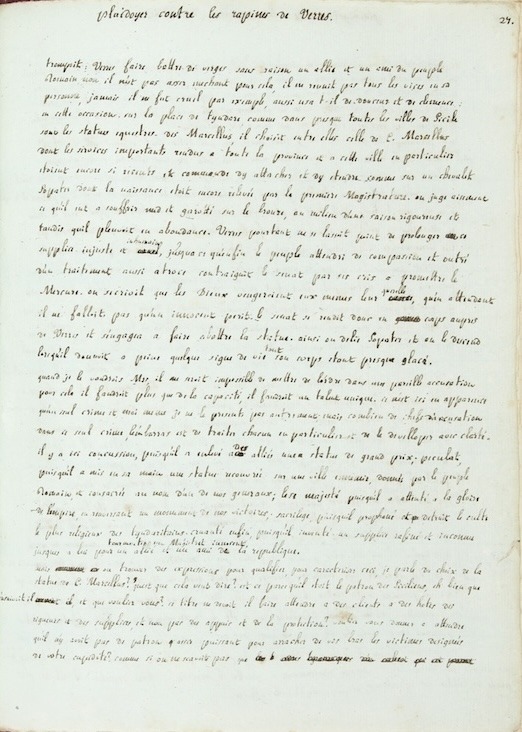 plaidoyer contre les rapines de Verres.
27.
trompoit: Verres faire battre de verges sans raison un allié et un ami du peuple
Romain non il n'est pas assez mechant pour cela, il ne reunit pas tous les vices en sa
personne, jamais il ne fut cruel par exemple, aussi usa t il de douceur et de clemence
en cette occasion. sur la place de tyndare comme dans presque toutes les villes de Sicile
sont les statues equestres des Marcellus il choisit entre elles celle de C. Marcellus
dont les services importants rendus a toute la province et a cette ville en particulier
etoient encore si recents, & commanda dy attacher et dy etendre comme sur un chevalet
Sopater dont la naissance etoit encore relevée par la premiere Magistrature. on juge aisement
ce quil eut a souffrir nud et garotté sur le bronze, au milieu d'une saison rigoureuse et
tandis quil pleuvoit en abondance. Verres pourtant ne se lassoit point de prolonger ce
supplice injuste et jusqu'a ce qu'enfin le peuple attendri de compassion et outré
d'un traitement aussi atroce contraignit le senat par ses cris a promettre le
Mercure. on s'ecrioit que les Dieux vengeroient eux memes leur querelle, quen attendant
il ne falloit pas qu'un innocent perit. le senat se rendit donc en corps aupres
de Verres et s'engagea a faire abattre la statue. ainsi on delie Sopater et on le descend
lorsqu'il donnoit a peine quelque signe de vie tant son corps etoit presque glacé.
quand je le voudrois Mrs, il me seroit impossible de mettre de l'ordre dans une pareille accusation
pour cela il faudroit plus que de la capacité, il faudroit un talent unique. ce n'est ici en apparence
qu'un seul crime et moi meme je ne le presente pas autrement mais combien de chefs d'accusation
dans ce seul crime l'embarras est de traiter chacun en particulier et de le developper avec clarté.
il y a ici concussion, puisqu'il a enlevé a des alliés une statue de grand prix; peculat,
puisqu'il a mis en sa main une statue recouvrée sur une ville ennemie, donnée par le peuple
Romain, et consacrée au nom d'un de nos generaux; leze majesté puisqu'il a attenté a la gloire
de l'empire, en renversant un monument de nos victoires, sacrilege, puisquil prophané et detruit le culte
le plus religieux des tyndaritains. cruauté enfin, puisqu'il inventa un supplice rafiné et inconnu
jusques a lui pour un allié et un ami de la republique.
tourmenter un Magistrat innocent,
mais ou trouver des expressions pour qualifier, pour caracteriser ceci, je parle du choix de la
statue de C. Marcellus? quest que cela veut dire? est ce parce quil etoit le patron des Siciliens, eh bien que
il, et que voulez vous? ce titre devroit il faire attendre a des clients a des hotes des
rigueurs et des supplices et non pas des appuis et de la protection? vous donner a attendre
quil ny avoit pas de patron assez puissant pour arracher de vos bras les victimes designées
de votre cupidité? comme si on ne savoit pas que